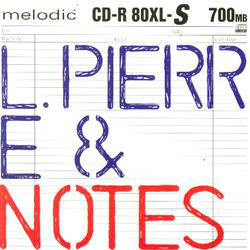 melodic CD-R 80XL-S 700MB
L. PIERR
E &
NOTES